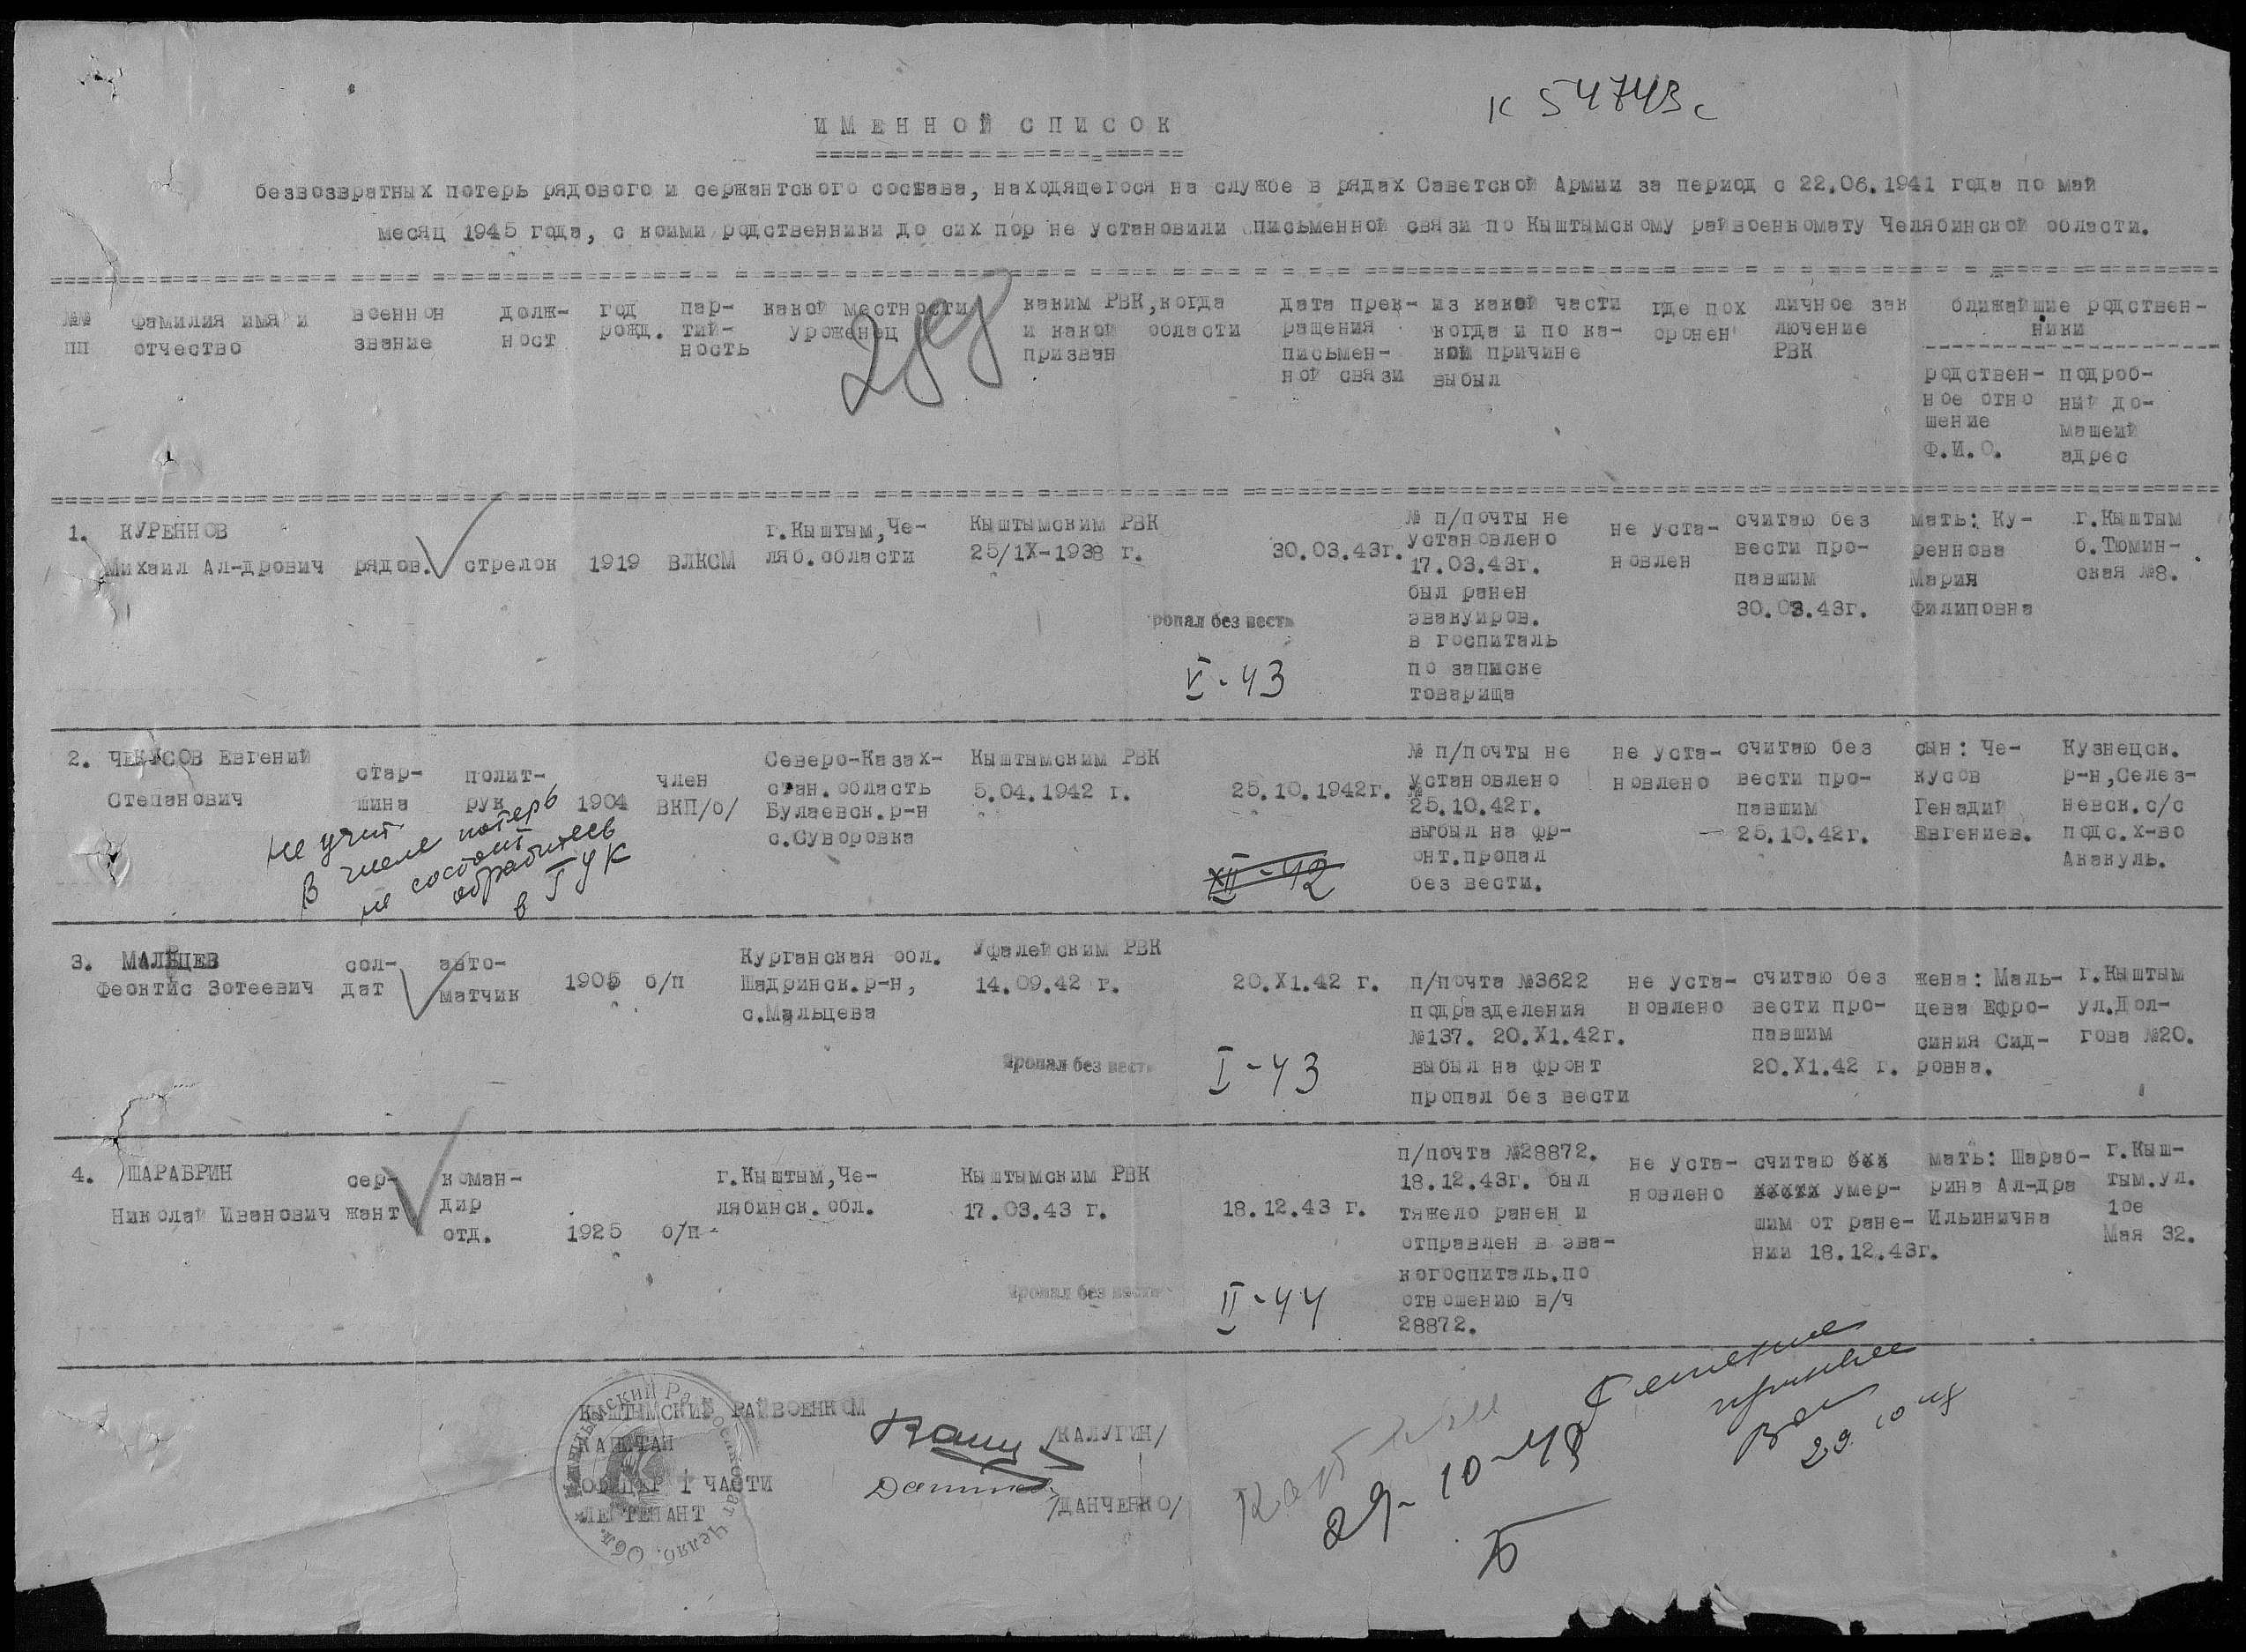 К 54743с
ИМЕННОЙ СПИСОК
безвозвратных потерь рядового и сержантского состава, находящегося на службе в рядах Саветской Армии за период с 22.06.1941 года по май
месяц 1945 года, с коими родственники до сих пор не установили письменной связи по Кыштымскому райвоенкомату Челябинской области.
№№ пп
фамилия имя и отчество
военное звание
долж-
ност
год
рожд.
пар-
тий-
ность
какой местности
уроженец
каким РВК, когда
и какой области
призван
дата прек-
ращения
письмен-
ной связи
из какой части
когда и по ка-
кой причине
выбыл
где пох
оронен
личное зак
лючение
РВК
ближайшие родствен-
ники
родствен-
ное отно
шение
Ф.И.О.
подроб-
ный до-
машеий
адрес
1. КУРЕННОВ
Михаил Ал-дрович
рядов.
стрелок
1919
ВЛКСМ
г.Кыштым, Че-
ляб. области
Кыштымским РВК
25/1Х-1938 г.
30.03.43г.
№ п/почты не
установлено
17.03.43г.
был ранен
эвакуиров.
в госпиталь
по записке
товарища
не уста-
новлен
считаю без
вести про-
павшим
30.03.43г.
мать: Ку-
реннова
Мария
Филиповна
г.Кыштым
б.Тюмин-
ская №8.
ропал без вести
V-43
2. ЧЕКУСОВ Евгений
Степанович
стар-
шина
полит-
рук
1904
член
ВКП/б/
Северо-Казах-
стан. область
Булаевск. р-н
с.Суворовка
Кыштымским РВК
5.04.1942 г.
25.10.1942г.
№ п/почты не
установлено
25.10.42г.
выбыл на фр-
онт. пропал
без вести.
не уста-
новлено
считаю без
вести про-
павшим
25.10.42г.
сын: Че-
кусов
Генадий
Евгениев.
Кузнецск.
р-н, Селез-
невск. с/с
подс. х-во
Акакуль.
не учит.
В числе потерь
не состоит
обратитесь
в ГУК
XII-42
3. МАЛЬЦЕВ
Феоктис Зотеевич
сол-
дат
авто-
матчик
1905
б/п
Курганская обл.
Шадринск. р-н,
с.Мальцева
Уфалейским РВК
14.09.42 г.
20.Х1.42 г.
п/почта №3622
подразделения
№137. 20.Х1.42г.
выбыл на фронт
пропал без вести
не уста-
новлено
считаю без
вести про-
павшим
20.Х1.42 г.
жена: Маль-
цева Ефро-
синия Сид-
ровна.
г.Кыштым
ул.Дол-
гова №20.
Пропал без вести
I-43
4. ШАРАБРИН
Николай Иванович
сер-
жант
коман-
дир
отд.
1925
б/п
г.Кыштым, Че-
лябинск. обл.
Кыштымским РВК
17.03.43 г.
18.12.43 г.
п/почта №28872.
18.12.43г. был
тяжело ранен и
отправлен в эва-
когоспиталь. по
отношению в/ч
28872.
не уста-
новлено
считаю без
вести умер-
шим от ране-
нии 18.12.43г.
мать: Шараб-
рина Ал-дра
Ильинична
г.Кыш-
тым. ул.
1ое
Мая 32.
Пропал без вести
II-44
КЫШТЫМСКИЙ РАЙВОЕНКОМ
КАПИТАН
/КАЛУГИН/
1 ЧАСТИ
ЛЕЙТЕНАНТ
/ДАНЧЕНКО/
29-10-49